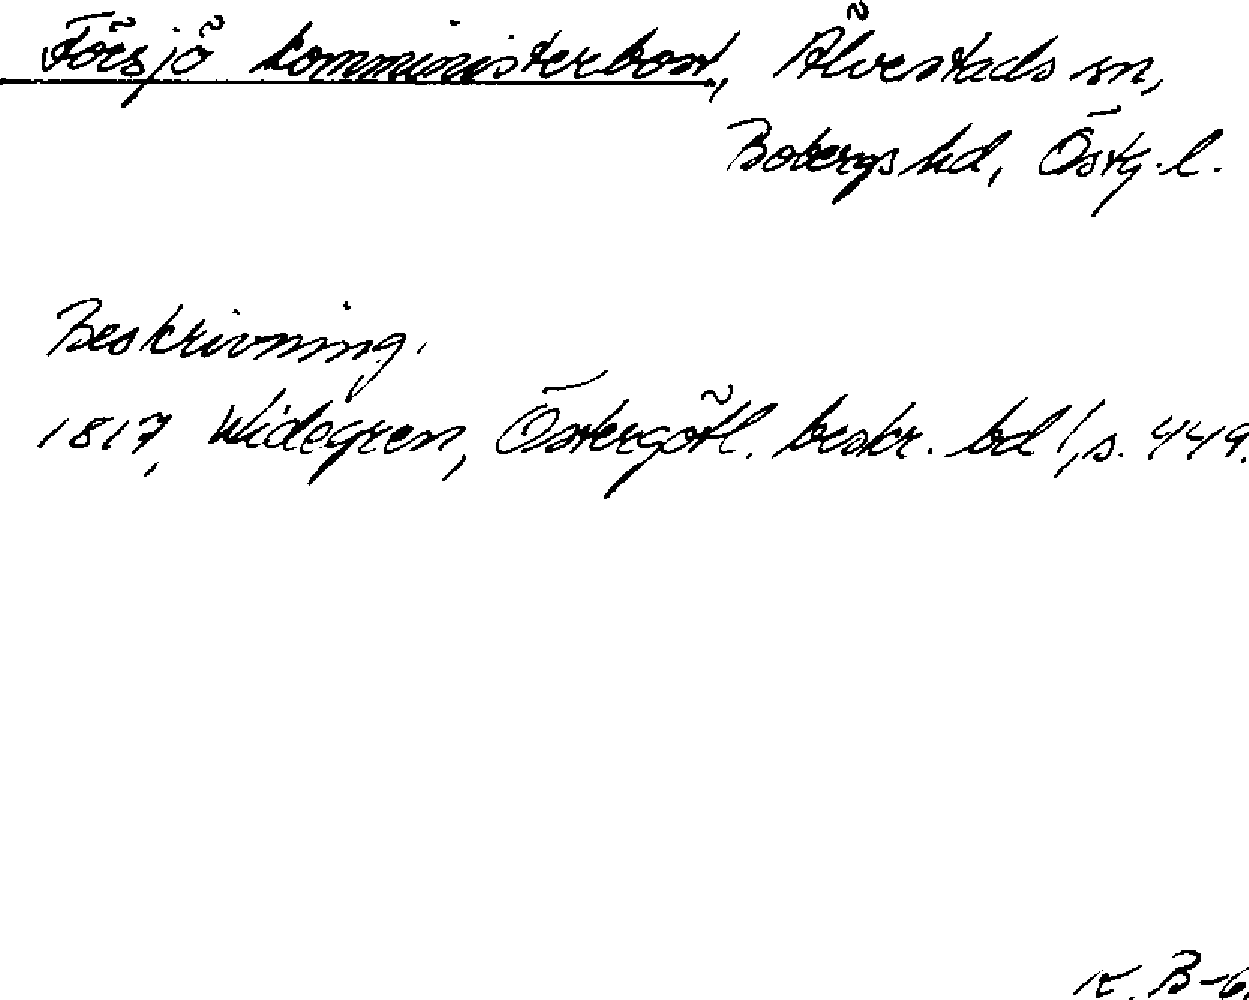 Försjö komministerbost, Älvestads sn,
Bobergs hd, Östg. l.
Beskrivning.
1817, Widegren, Östergötl. beskr. bd 1, s. 449.
K. B-6.